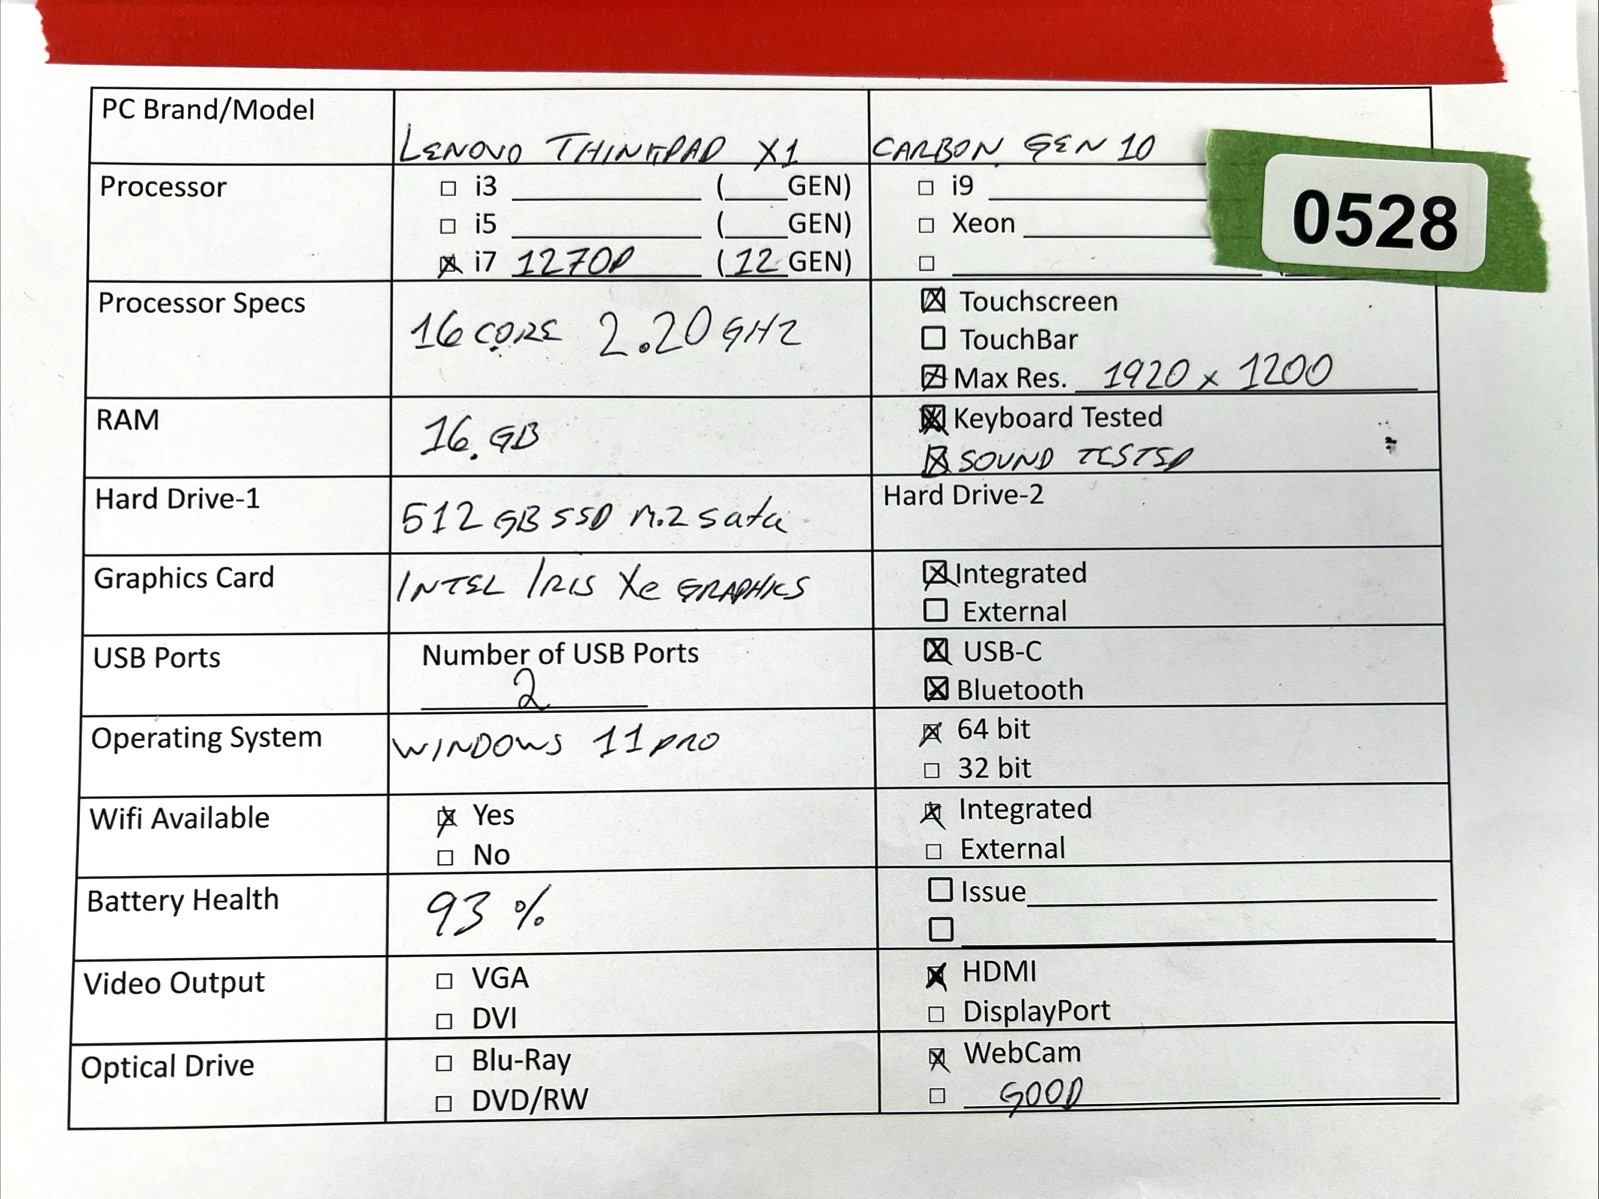 PC Brand/Model
LENOVO THINKPAD X1 CARBON GEN 10
0528
Processor
i3 ( GEN)
i5 ( GEN)
i7 1270P (12 GEN)
i9
Xeon
Processor Specs
16 CORE 2.20 GHZ
Touchscreen
TouchBar
Max Res. 1920 x 1200
RAM
16 GB
Keyboard Tested
SOUND TESTED
Hard Drive-1
512 GB SSD M.2 sata
Hard Drive-2
Graphics Card
INTEL IRIS Xe GRAPHICS
Integrated
External
USB Ports
Number of USB Ports
2
USB-C
Bluetooth
Operating System
WINDOWS 11 PRO
64 bit
32 bit
Wifi Available
Yes
No
Integrated
External
Battery Health
93 %
Issue
Video Output
VGA
DVI
HDMI
DisplayPort
Optical Drive
Blu-Ray
DVD/RW
WebCam
GOOD